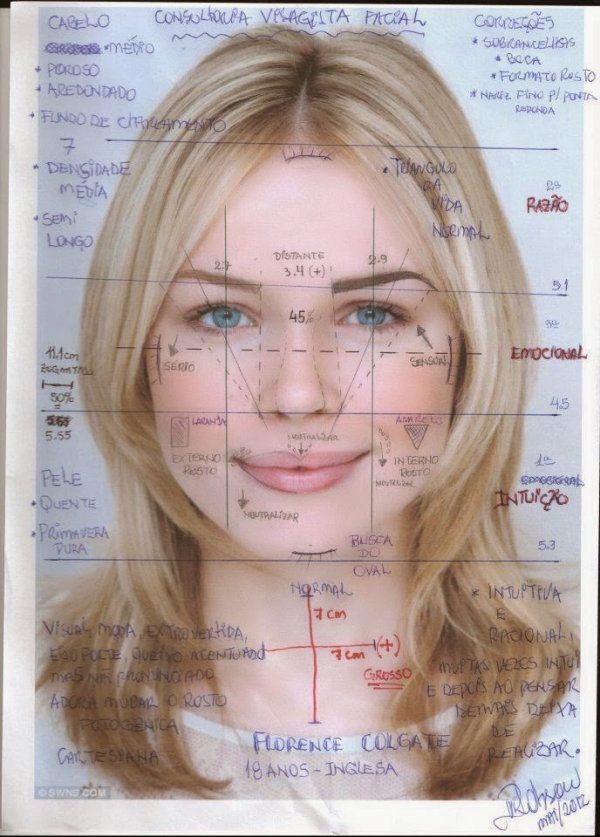 CONSULTORIA VISAGISTA FACIAL
CABELO
MÉDIO
* POROSO
* AREDONDADO
* FUNDO DE CLAREAMENTO
7
* DENSIDADE
MÉDIA
* SEMI
LONGO
CORREÇÕES
* SOBRANCELHAS
* BOCA
* FORMATO ROSTO
* NARIZ FINO P/ PONTA
REDONDA
* TRIANGULO
DA
VIDA
NORMAL
2ª
RAZÃO
DISTANTE
3.4 (+)
2.7
2.9
5.1
45%
3ª
EMOCIONAL
SÉRIO
SENSUAL
11.1cm
50%
=
5.55
4.5
LARANJA
AMARELO
NEUTRALIZAR
EXTERNO
ROSTO
INTERNO
ROSTO
NEUTRALIZAR
NEUTRALIZAR
1ª
INTUIÇÃO
PELE
* QUENTE
* PRIMAVERA
PURA
BUSCA
DO
OVAL
5.3
NORMAL
7 cm
7 cm
(+)
GROSSO
VISUAL, MODA, EXTROVERTIDA,
EGO FORTE, QUEIXO ACENTUADO
MAS NÃO PRONUNCIADO
ADORA MUDAR O ROSTO
FOTOGÊNICA
CARTESIANA
* INTUITIVA
E
RACIONAL,
MUITAS VEZES INTUI
E DEPOIS AO PENSAR
DEMAIS DEIXA
DE
REALIZAR.
FLORENCE COLGATE
18 ANOS - INGLESA
Robson
MAI/2012
© SWNS.COM